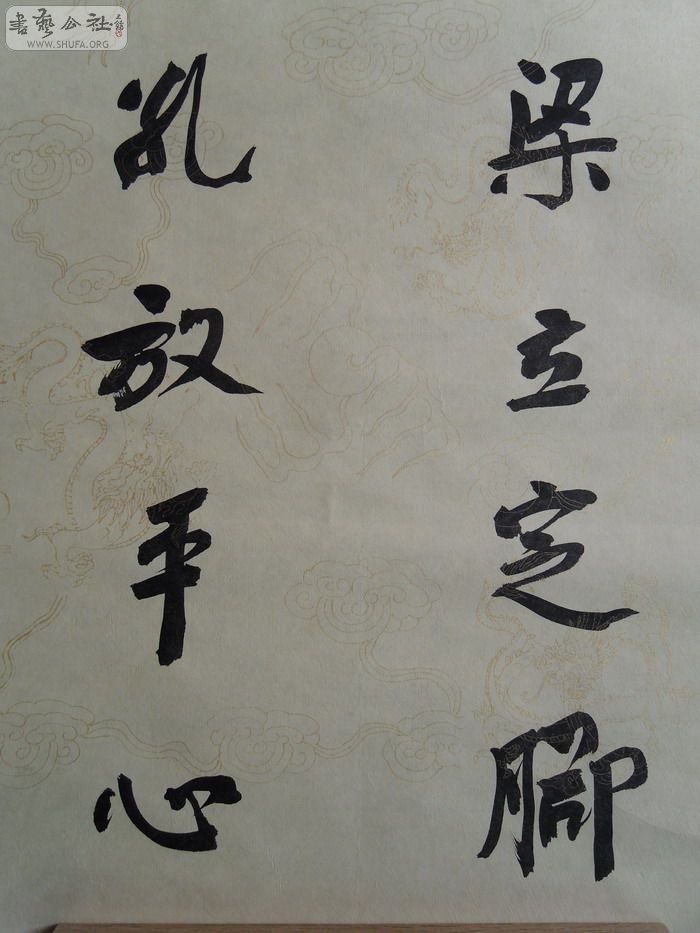 書藝公社
WWW.SHUFA.ORG
梁立定腳
孔放平心